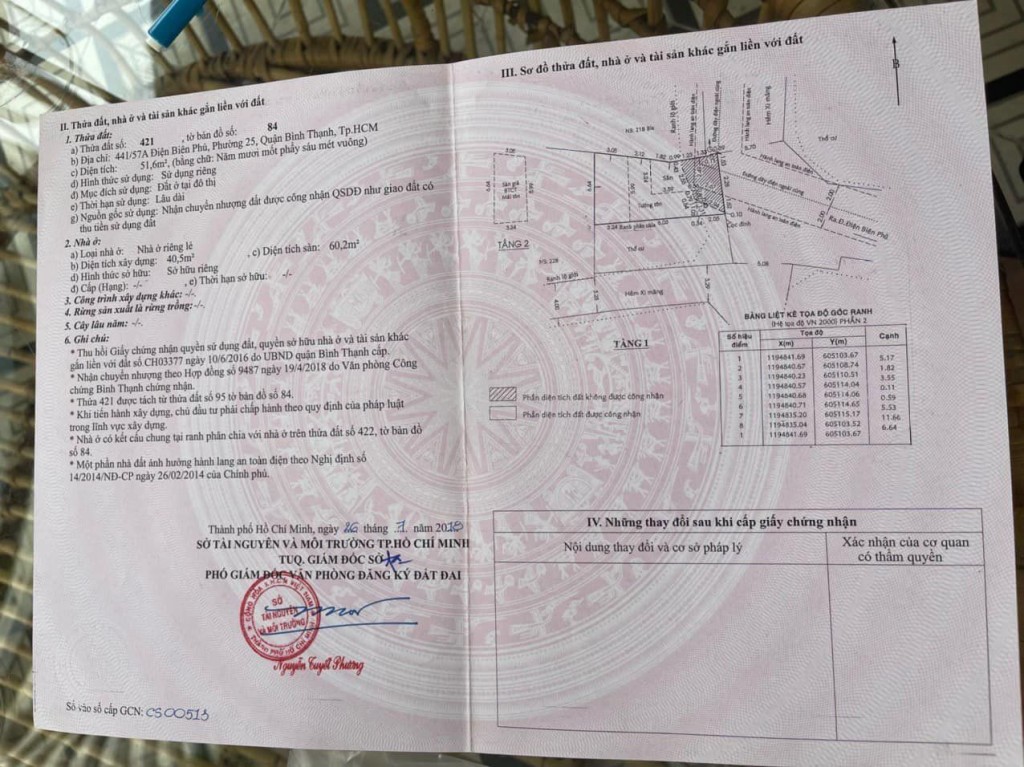 II. Thửa đất, nhà ở và tài sản khác gắn liền với đất
1. Thửa đất:
a) Thửa đất số: 421 , tờ bản đồ số: 84
b) Địa chỉ: 441/57A Điện Biên Phủ, Phường 25, Quận Bình Thạnh, Tp.HCM
c) Diện tích: 51,6m², (bằng chữ: Năm mươi mốt phẩy sáu mét vuông)
d) Hình thức sử dụng: Sử dụng riêng
đ) Mục đích sử dụng: Đất ở tại đô thị
e) Thời hạn sử dụng: Lâu dài
g) Nguồn gốc sử dụng: Nhận chuyển nhượng đất được công nhận QSDĐ như giao đất có
thu tiền sử dụng đất
2. Nhà ở:
a) Loại nhà ở: Nhà ở riêng lẻ
b) Diện tích xây dựng: 40,5m² , c) Diện tích sàn: 60,2m²
d) Hình thức sở hữu: Sở hữu riêng
đ) Cấp (Hạng): -/- , e) Thời hạn sở hữu: -/-
3. Công trình xây dựng khác: -/-
4. Rừng sản xuất là rừng trồng: -/-
5. Cây lâu năm: -/-.
6. Ghi chú:
* Thu hồi Giấy chứng nhận quyền sử dụng đất, quyền sở hữu nhà ở và tài sản khác
gắn liền với đất số CH03377 ngày 10/6/2016 do UBND quận Bình Thạnh cấp.
* Nhận chuyển nhượng theo Hợp đồng số 9487 ngày 19/4/2018 do Văn phòng Công
chứng Bình Thạnh chứng nhận.
* Thửa 421 được tách từ thửa đất số 95 tờ bản đồ số 84.
* Khi tiến hành xây dựng, chủ đầu tư phải chấp hành theo quy định của pháp luật
trong lĩnh vực xây dựng.
* Nhà ở có kết cấu chung tại ranh phân chia với nhà ở trên thửa đất số 422, tờ bản đồ
số 84.
* Một phần nhà đất ảnh hưởng hành lang an toàn điện theo Nghị định số
14/2014/NĐ-CP ngày 26/02/2014 của Chính phủ.
Thành phố Hồ Chí Minh, ngày 26 tháng 7 năm 2018
SỞ TÀI NGUYÊN VÀ MÔI TRƯỜNG TP.HỒ CHÍ MINH
TUQ. GIÁM ĐỐC SỞ
PHÓ GIÁM ĐỐC VĂN PHÒNG ĐĂNG KÝ ĐẤT ĐAI
SỞ
TÀI NGUYÊN
VÀ MÔI TRƯỜNG
Nguyễn Tuyết Phương
Số vào sổ cấp GCN: CS00513
III. Sơ đồ thửa đất, nhà ở và tài sản khác gắn liền với đất
B
Ranh lộ giới
Hành lang an toàn điện
Đường dây điện ngoài cùng
Hành lang an toàn điện
Hẻm Xi măng
Thổ cư
5.70
Hành lang an toàn điện
Đường dây điện ngoài cùng
Hành lang an toàn điện
2.00
2.00
Ra.Đ.Điện Biên Phủ
Sân
Tường tôn
Cọc định
Thổ cư
TẦNG 2
Ranh lộ giới
Hẻm Xi măng
4.00
5.08
TẦNG 1
Phần diện tích đất không được công nhận
Phần diện tích đất được công nhận
BẢNG LIỆT KÊ TỌA ĐỘ GÓC RANH
(Hệ tọa độ VN 2000) PHẦN 2
Số hiệu điểm Tọa độ Cạnh
X(m) Y(m)
1 1194841.69 605103.67 5.17
2 1194840.67 605108.74 1.82
3 1194840.23 605110.51 3.55
4 1194840.57 605114.04 0.11
5 1194840.68 605114.06 0.59
6 1194840.71 605114.65 5.53
7 1194835.20 605115.17 11.66
8 1194835.04 605103.52 6.64
1 1194841.69 605103.67
IV. Những thay đổi sau khi cấp giấy chứng nhận
Nội dung thay đổi và cơ sở pháp lý
Xác nhận của cơ quan
có thẩm quyền